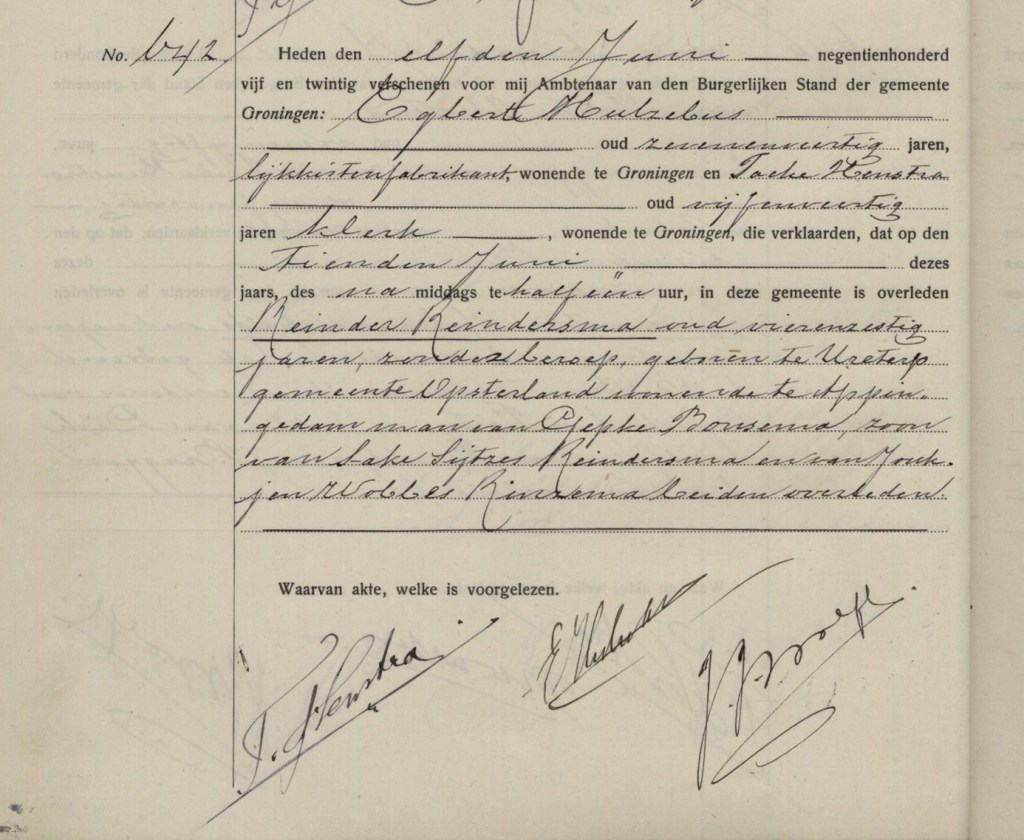 No. 642 Heden den elfden Juni negentienhonderd
vijf en twintig verschenen voor mij Ambtenaar van den Burgerlijken Stand der gemeente
Groningen: Egbert Hulzebus
oud zevenenveertig jaren,
lijkkistenfabrikant, wonende te Groningen en Tacke Henstra
oud vijfenveertig
jaren klerk, wonende te Groningen, die verklaarden, dat op den
tienden Juni dezes
jaars, des na middags te half één uur, in deze gemeente is overleden
Reinder Reindersma oud vierenzestig
jaren, zonder beroep, geboren te Ureterp
gemeente Opsterland wonende te Appin-
gedam man van Bonsema, zoon
van Sake Sijtzes Reindersma en van Jouk-
jen Wobbes Rinzema beiden overleden.
Waarvan akte, welke is voorgelezen.
T. Henstra